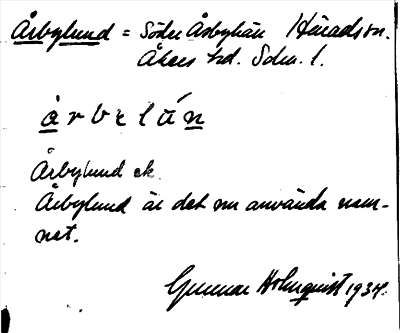 Årbylund = Söder Årbyhär Häradsn.
Åkers hd. Södm. l.
årbelún
Årbylund ek.
Årbylund är det nu använda nam-
net.
Gunnar Holmquist 1934.